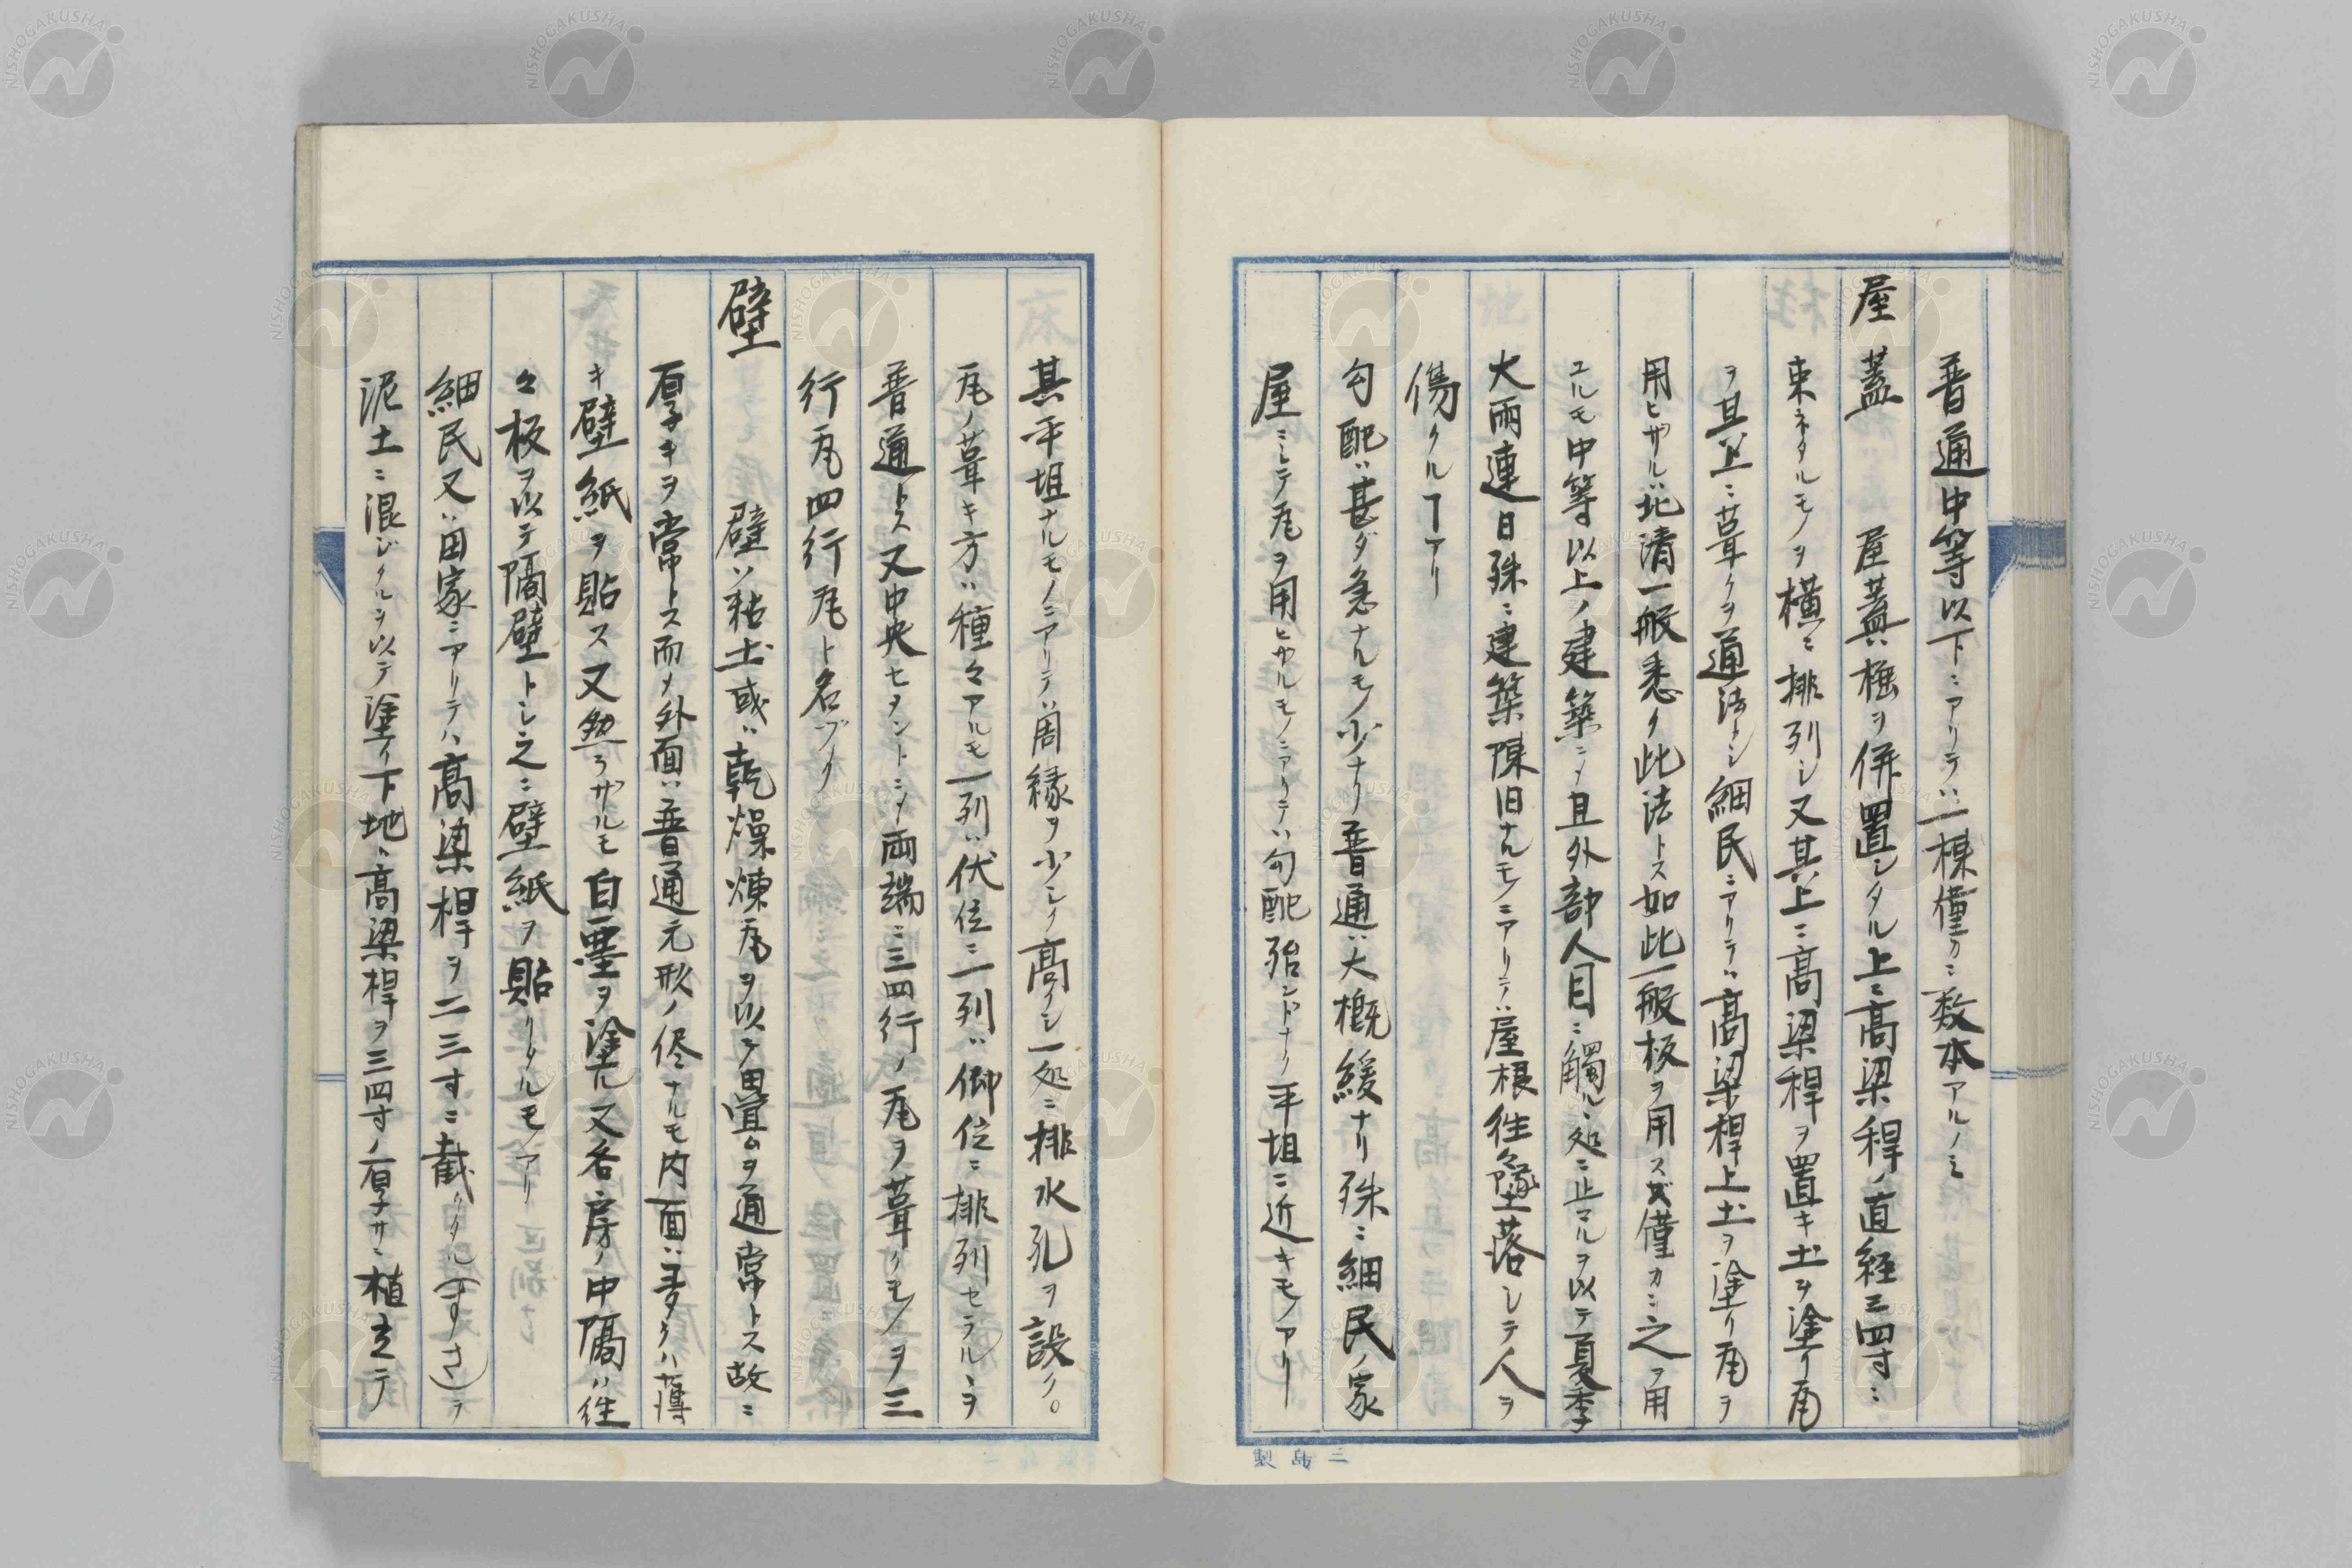 普通中等以下ニアリテハ一棟僅カニ数本アルノミ
屋蓋 屋蓋ハ極ヲ併置シタル上ニ高梁稈ノ直経三四寸ニ
束ネタルモノヲ横ニ排列シ又其上ニ高梁稈ヲ置キ土ヲ塗リ瓦
ヲ其上ニ葺クヲ通法トシ細民ニアリテハ高梁稈上土ヲ塗リ瓦ヲ
用ヒザルハ北清一般悉ク此法トス如此一般板ヲ用スズ僅カニ之ヲ用
ユルモ中等以上ノ建築ニメ且外部人目ニ觸ルヽ処ニ止マルヲ以テ夏季
大雨連日殊ニ建築陳旧ナルモノニアリテハ屋根往々墜落シテ人ヲ
傷クルヿアリ
勾配ハ甚ダ急ナルモノ少ナリ普通ハ大概緩ナリ殊ニ細民ノ家
屋ニシテ瓦ヲ用ヒザルモノニアリテハ勾配殆ンドナク平坦ニ近キモノアリ
其平坦ナルモノニアリテハ周縁ヲ少シク高クシ一処ニ排水孔ヲ設ク。
瓦ノ葺キ方ハ種々アルモ一列ハ伏位ニ一列ハ仰位ニ排列セラルヽヲ
普通トス又中央セヲントニメ両端ニ三四行ノ瓦ヲ葺クモノヲ三
行瓦四行瓦ト名ヅク
壁 壁ハ粘土或ハ乾燥煉瓦ヲ以テ畳ムヲ通常トス故ニ
厚キヲ常トス而メ外面ハ普通元形ノ侭ナルモ内面ハ多クハ薄
キ壁紙ヲ貼ス又然ラザルモ白堊ヲ塗ル又各房ノ中隔ハ往
々板ヲ以テ隔壁トシ之ニ壁紙ヲ貼リタルモノアリ
細民又ハ田家ニアリテハ高梁稈ヲ二三寸ニ截リタル(すさ)ヲ
泥土ニ混ジタルヲ以テ塗リ下地ハ高梁稈ヲ三四寸ノ厚サニ植立テ
三島製
NISHOGAKUSHA